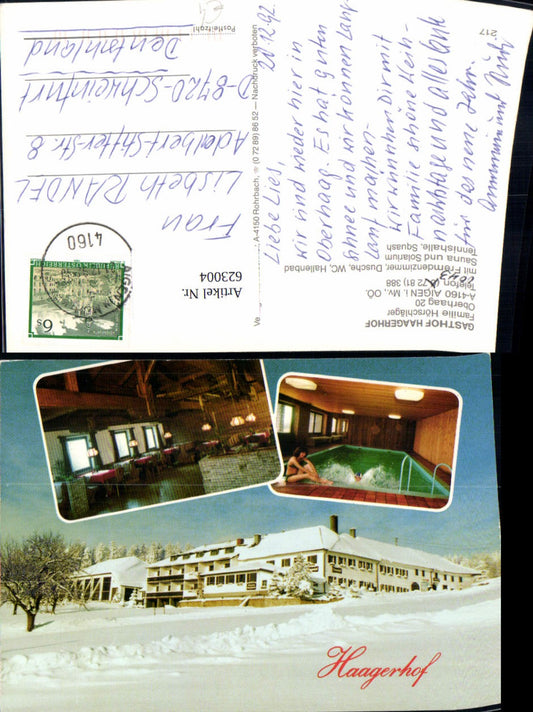 217
GASTHOF HAAGERHOF
Familie Hörschläger
Oberhaag 20
A-4160 AIGEN i. Mv., OÖ.
Telefon (0 72 81) 388
mit Fremdenzimmer, Dusche, WC, Hallenbad
Sauna und Solarium
Tennishalle, Squash
20.12.92
Liebe Lies,
wir sind wieder hier in
Oberhaag. Es hat guten
Schnee und wir können Lang-
lauf machen.
Wir wünschen Dir mit
Familie schöne Weih-
nachtstage und alles Gute
für das neue Jahr.
A-4150 Rohrbach, ☏ (0 72 89) 86 52 — Nachdruck verboten
Artikel Nr.
623004
4160
AIGEN
6 S
REPUBLIK ÖSTERREICH
Frau
Lisbeth RANDEL
Adalbert-Stifter-Str. 8
D-8720-Schweinfurt
Deutschland
Postleitzahl
Haagerhof